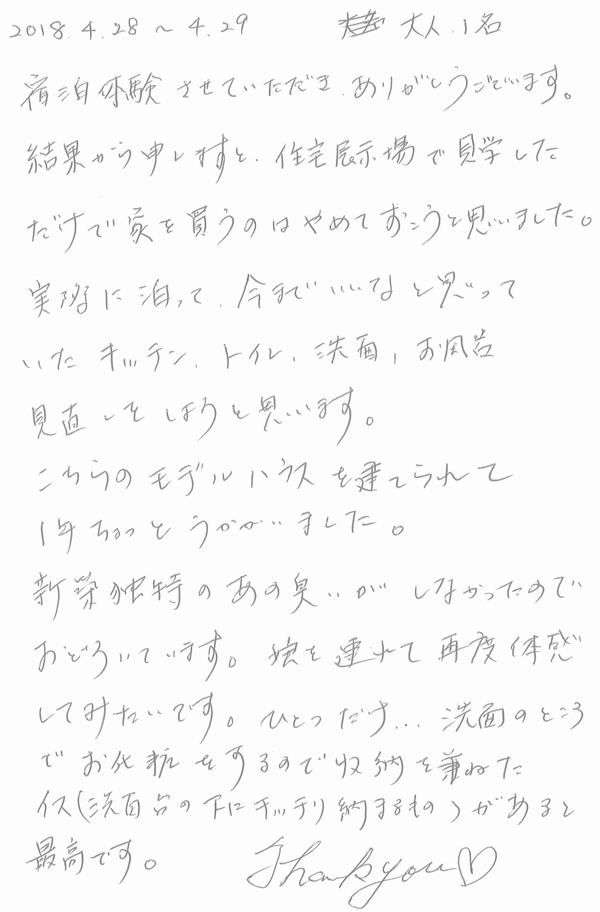 2018.4.28 ~ 4.29 大人.1名
宿泊体験させていただき、ありがとうございます。
結果から申しますと、住宅展示場で見学した
だけで家を買うのはやめておこうと思いました。
実際に泊って、今までいいなと思って
いたキッチン、トイレ、洗面、お風呂
見直しをしようと思います。
こちらのモデルハウスを建てられて
1年ちょっとうかがいました。
新築独特のあの臭いがしなかったので
おどろいています。娘を連れて再度体感
してみたいです。ひとつだけ…洗面のところ
でお化粧をするので収納を兼ねた
イス(洗面台の下にキッチリ納まるもの)があると
最高です。 Thank you♡